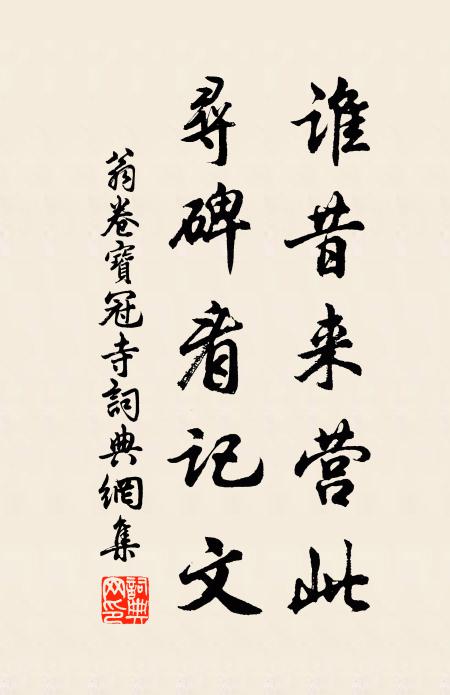 谁昔来营此
尋碑看记文
翁卷寶冠寺詞典網集
詞典網印